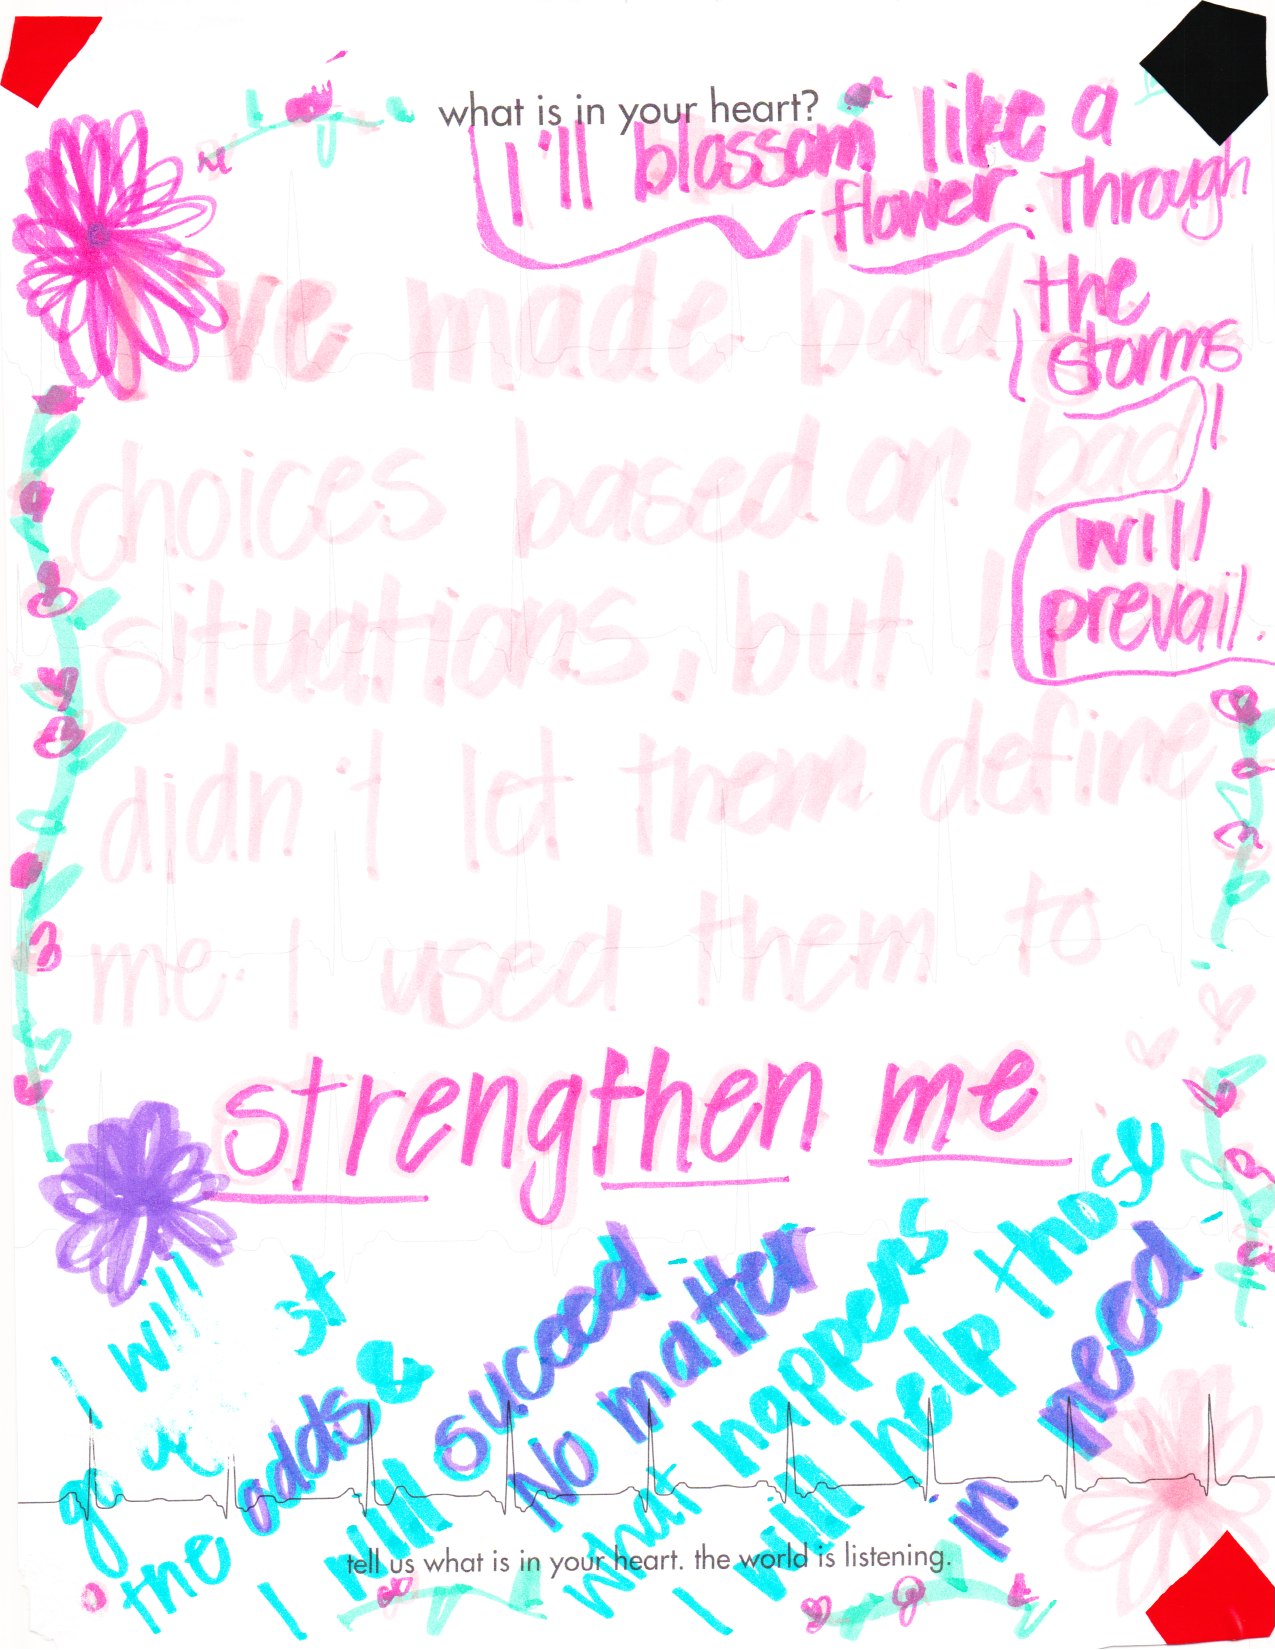 what is in your heart?
I'll blossom like a
flower. Through
the
storms
I
will
prevail.
I've made bad
choices based on bad
situations, but I
didn't let them define
me. I used them to
strengthen me
I will
go
the odds &
I will succeed
No matter
what happens
I will help those
in need
tell us what is in your heart. the world is listening.